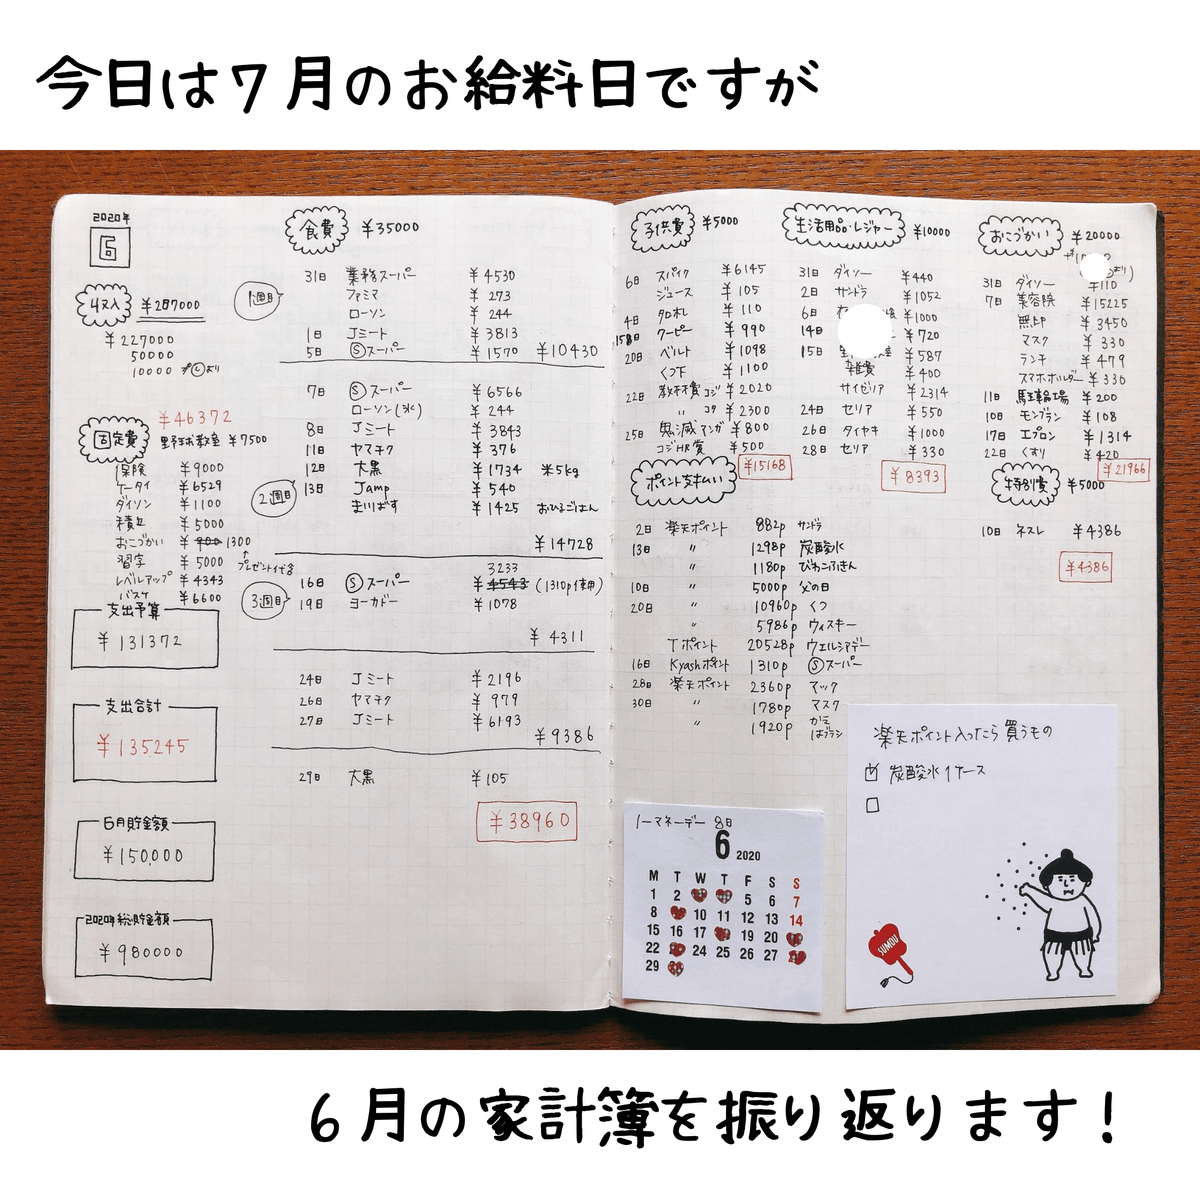 今日は7月のお給料日ですが
2020年
6
収入 ¥287000
¥227000
50000
10000
¥46372
固定費
野球教室 ¥7500
保険 ¥9000
ケータイ ¥6529
ダイソン ¥1100
積立 ¥5000
おこづかい ¥900 1300
プレゼント代含
習字 ¥5000
レベルアップ ¥4343
バスケ ¥6600
支出予算
¥131372
支出合計
¥135245
6月貯金額
¥150,000
2020年総貯金額
¥980000
食費 ¥35000
1週目
31日 業務スーパー ¥4530
ファミマ ¥273
ローソン ¥244
1日 Jミート ¥3813
5日 Ⓢスーパー ¥1570 ¥10430
2週目
7日 Ⓢスーパー ¥6566
ローソン(氷) ¥244
8日 Jミート ¥3843
11日 ヤマチク ¥376
12日 大黒 ¥1734 米5kg
13日 Jamp ¥540
まいばす ¥1425 おひるごはん
¥14728
3週目
3233
16日 Ⓢスーパー ¥4543 (1310p使用)
19日 ヨーカドー ¥1078
¥4311
24日 Jミート ¥2196
26日 ヤマチク ¥979
27日 Jミート ¥6193
¥9386
29日 大黒 ¥105
¥38960
子供費 ¥5000
6日 スパイク ¥6145
ジュース ¥105
4日 タロオレ ¥110
15日 クーピー ¥990
20日 ベルト ¥1098
くつ下 ¥1100
22日 教材費 コジ ¥2020
〃 コタ ¥2300
25日 鬼滅マンガ ¥800
コジHR賞 ¥500
¥15168
生活用品・レジャー ¥10000
31日 ダイソー ¥440
2日 サンドラ ¥1052
6日 ¥1000
14日 ¥720
15日 ¥587
雑費 ¥400
サイゼリア ¥2314
24日 セリア ¥550
26日 タイヤキ ¥1000
28日 セリア ¥330
¥8393
おこづかい ¥20000
31日 ダイソー ¥110
7日 美容院 ¥15225
無印 ¥3450
マスク ¥330
ランチ ¥479
スマホホルダー ¥330
11日 駐輪場 ¥200
10日 モンブラン ¥108
17日 エプロン ¥1314
22日 くすり ¥420
¥21966
特別費 ¥5000
10日 ネスレ ¥4386
¥4386
ポイント支払い
2日 楽天ポイント 882p サンドラ
13日 〃 1298p 炭酸水
〃 1180p びわこふきん
10日 〃 5000p 父の日
20日 〃 10960p くつ
〃 5986p ウィスキー
Tポイント 20528p ウエルシアデー
16日 Kyashポイント 1310p Ⓢスーパー
28日 楽天ポイント 2360p マック
30日 〃 1780p マスク
〃 1920p かえ
はブラシ
ノーマネーデー 8日
6 2020
M T W T F S S
1 2 5 6 7
8 10 11 12 13 14
15 16 17 19 20
22 24 25 26 27
29
楽天ポイント入ったら買うもの
炭酸水1ケース
SUMOU
6月の家計簿を振り返ります!